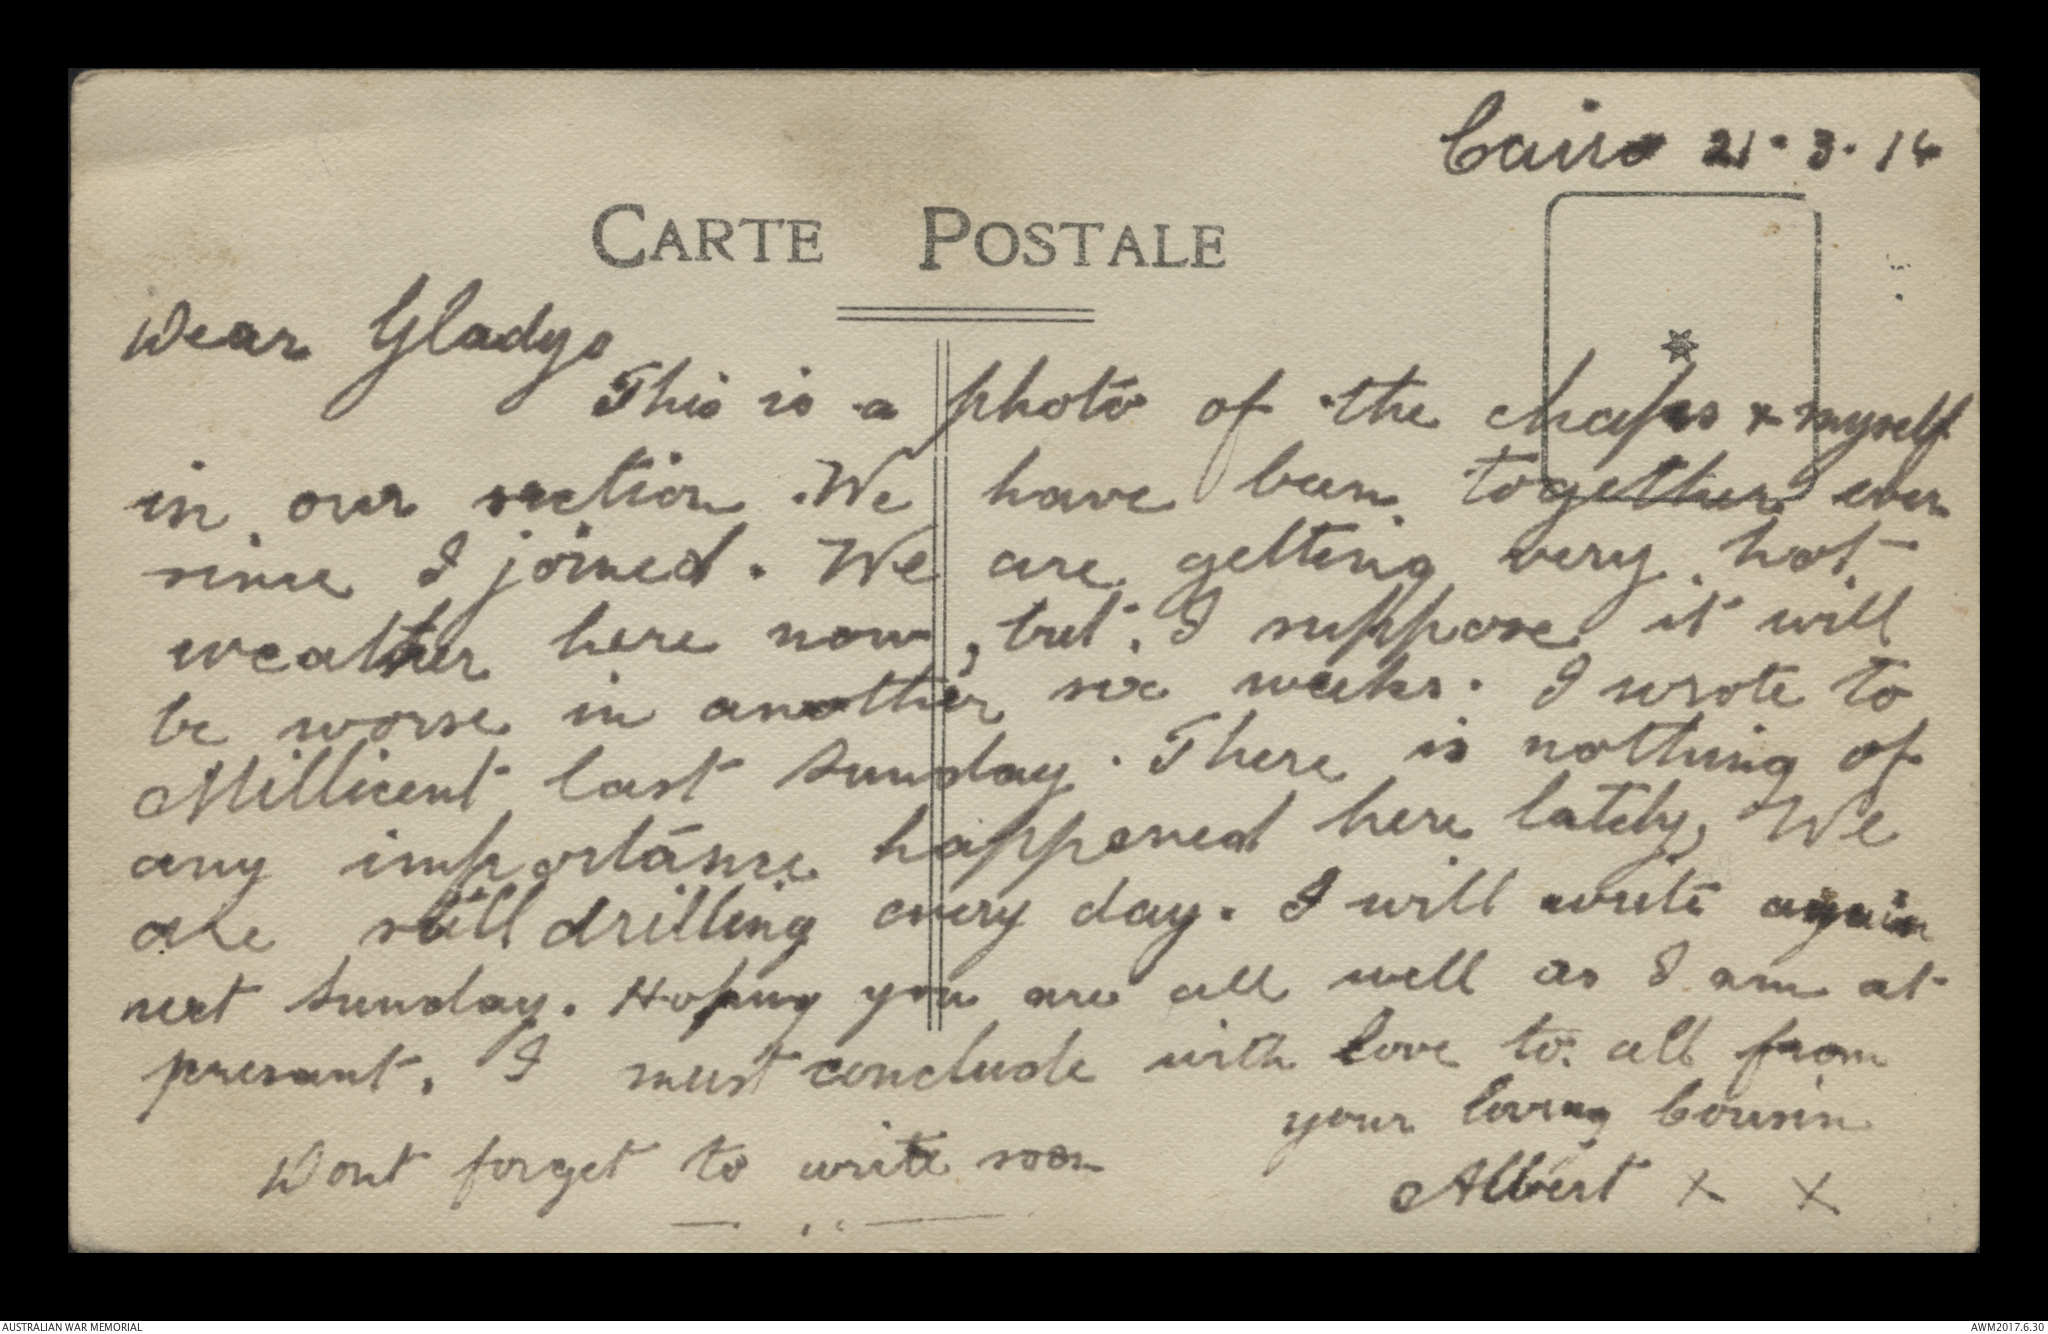 Cairo 21.3.14
CARTE POSTALE
Dear Gladys
This is a photo of the chaps & myself
in our section. We have been together ever
since I joined. We are getting very hot
weather here now, but I suppose it will
be worse in another six weeks. I wrote to
Millicent last Sunday. There is nothing of
any importance happened here lately, We
are still drilling every day. I will write again
next Sunday. Hoping you are all well as I am at
presant. I must conclude with love to all from
your loving Cousin
Dont forget to write soon
Albert x x
AUSTRALIAN WAR MEMORIAL
AWM2017.6.30